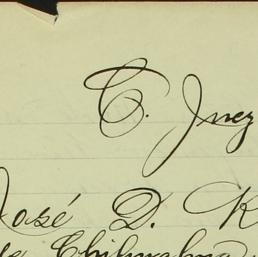 C. Juez
José D. K
de Chihuahua